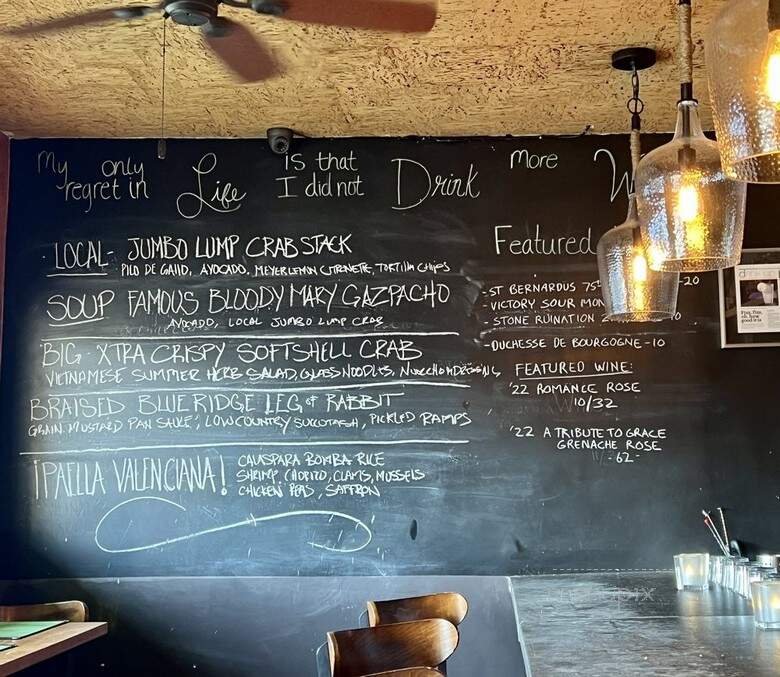 My only regret in Life is that I did not Drink more
LOCAL - JUMBO LUMP CRAB STACK
PICO DE GALLO, AVOCADO, MEYER LEMON TORTILLA CHIPS
SOUP FAMOUS BLOODY MARY GAZPACHO
AVOCADO, LOCAL JUMBO LUMP CRAB
BIG XTRA CRISPY SOFTSHELL CRAB
VIETNAMESE SUMMER HERB SALAD, GLASS NOODLES,
BRAISED BLUE RIDGE LEG of RABBIT
GRAIN MUSTARD PAN SAUCE, LOWCOUNTRY SUCCOTASH, PICKLED RAMPS
¡PAELLA VALENCIANA!
CALASPARA BOMBA RICE
SHRIMP, CHORIZO, CLAMS, MUSSELS
CHICKEN PEAS, SAFFRON
Featured
- ST BERNARDUS -20
- VICTORY SOUR
- STONE RUINATION
- DUCHESSE DE BOURGOGNE - 10
FEATURED WINE:
'22 ROMANCE ROSE
10/32
'22 A TRIBUTE TO GRACE
GRENACHE ROSE
- 62 -